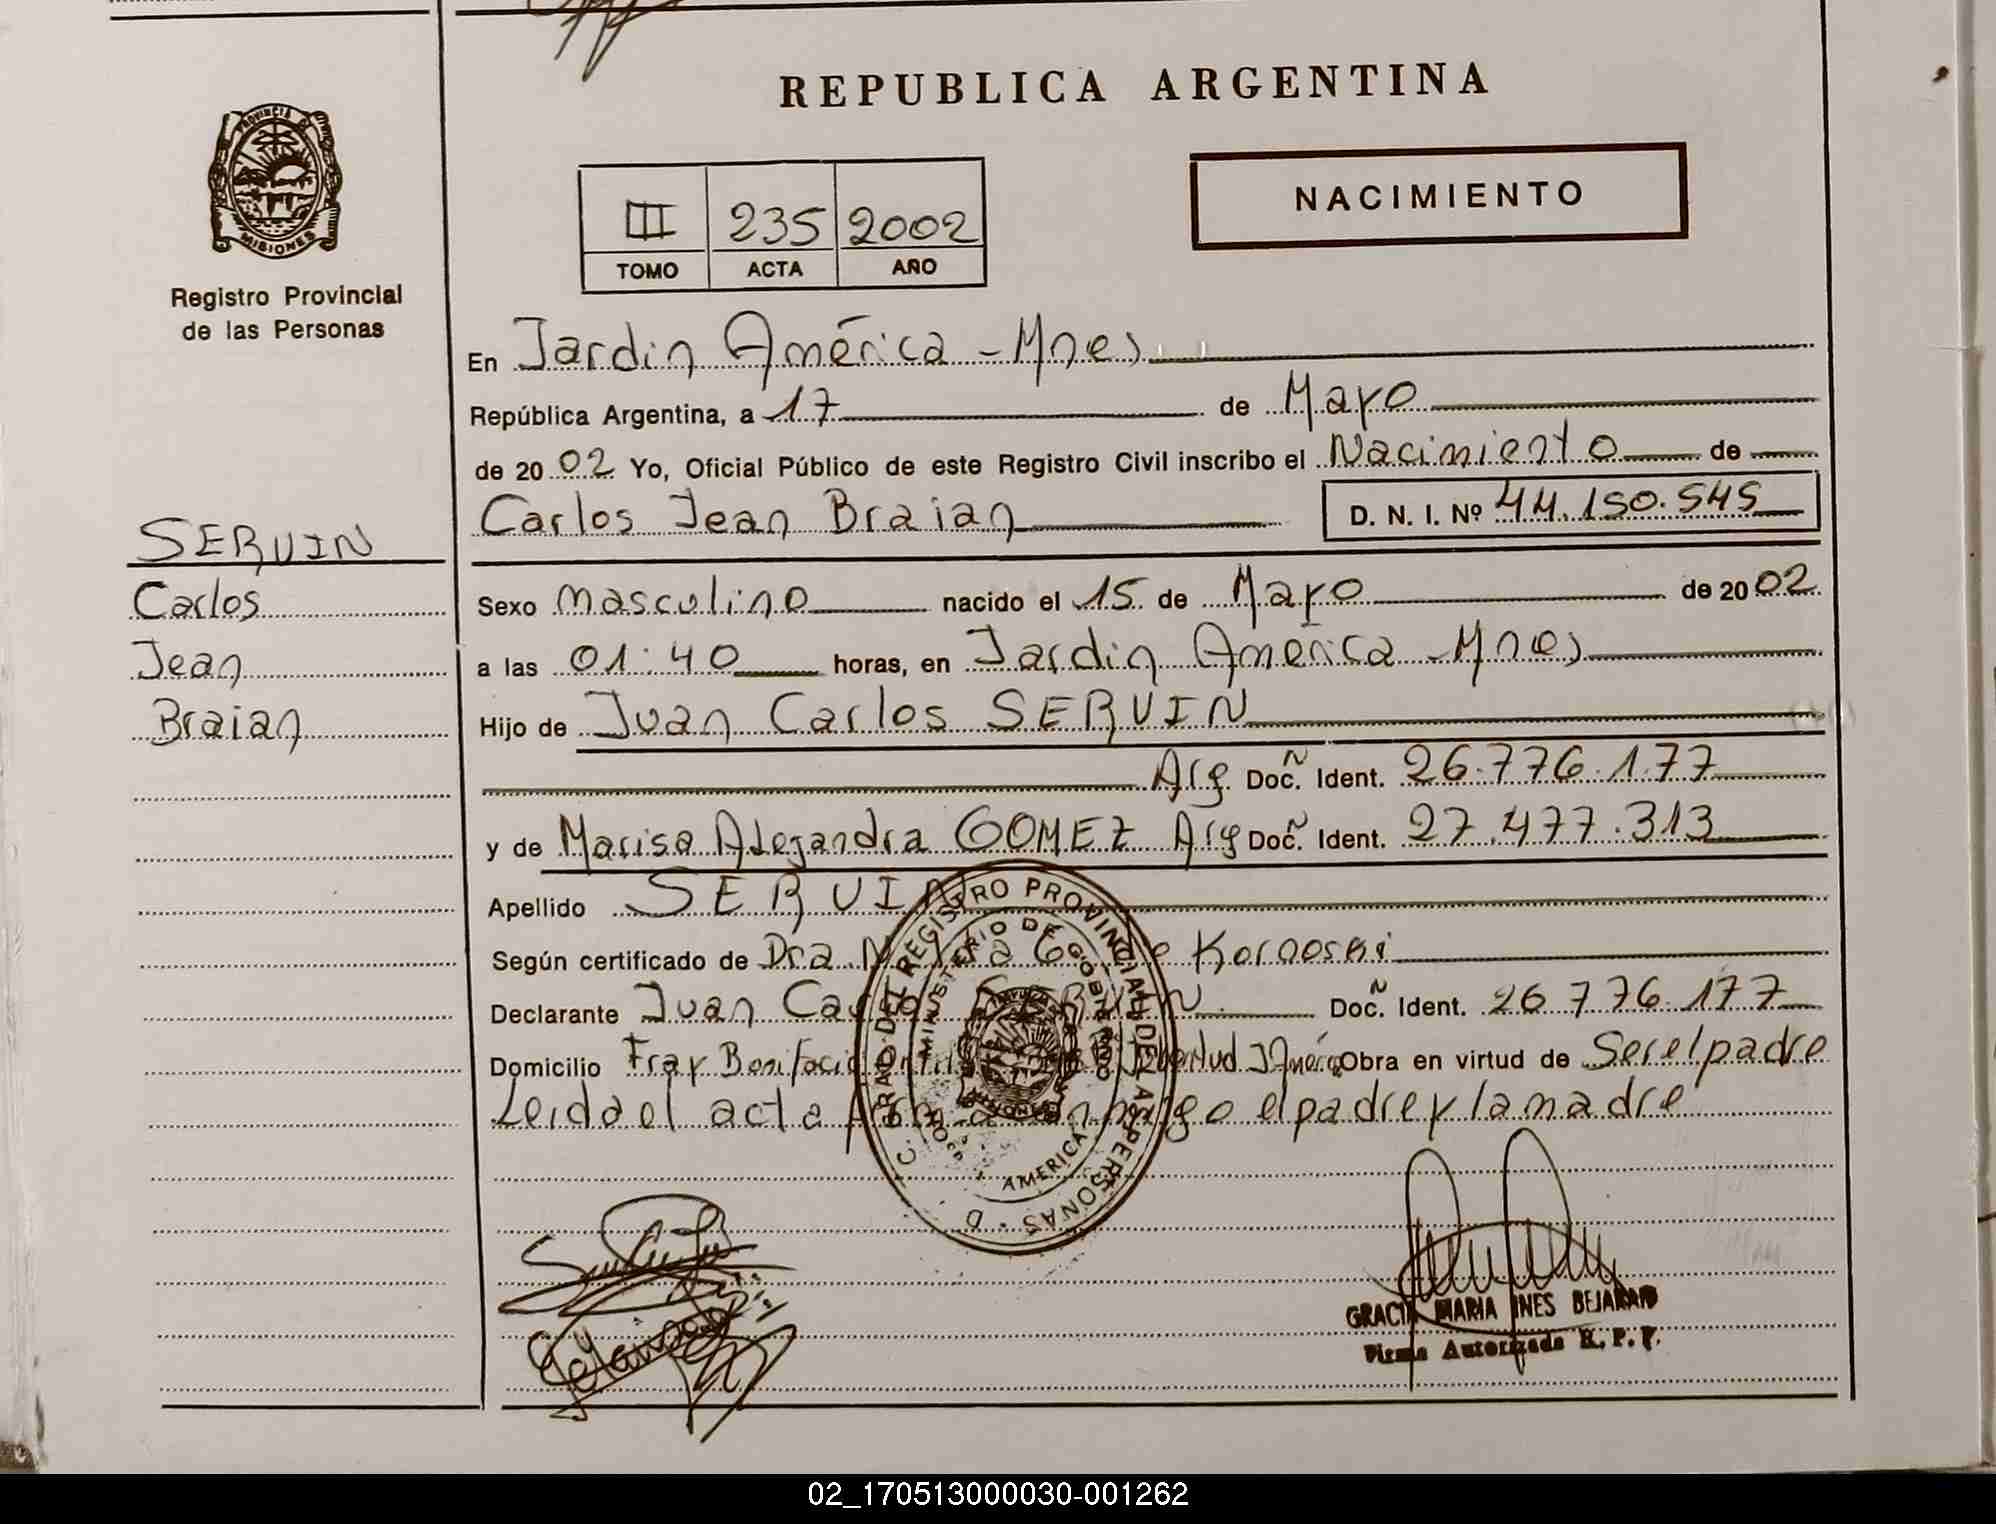 REPUBLICA ARGENTINA
PROVINCIA DE
MISIONES
Registro Provincial
de las Personas
NACIMIENTO
III 235 2002
TOMO ACTA AÑO
En Jardin América - Mnes
República Argentina, a 17 de Mayo
de 20 02 Yo, Oficial Público de este Registro Civil inscribo el Nacimiento de
Carlos Jean Braian D. N. I. Nº 44.150.545
SERVIN
Carlos
Jean
Braian
Sexo masculino nacido el 15 de Mayo de 20 02
a las 01:40 horas, en Jardin America - Mnes
Hijo de Juan Carlos SERVIN
Arg Doc. Ident. 26.776.177
y de Marisa Alejandra GOMEZ Arg Doc. Ident. 27.477.313
Apellido SERVIN
Según certificado de Dra. Kornoski
Declarante Juan Carlos SERVIN Doc. Ident. 26.776.177
Domicilio Fray Bonifacio J América Obra en virtud de Ser el padre
Leida el acta conmigo el padre y la madre
REGISTRO PROVINCIAL DE LAS PERSONAS
MINISTERIO DE GOBIERNO
AMERICA
MARIA INES BEJARANO
Firma Autorizada R. P. P.
02_170513000030-001262